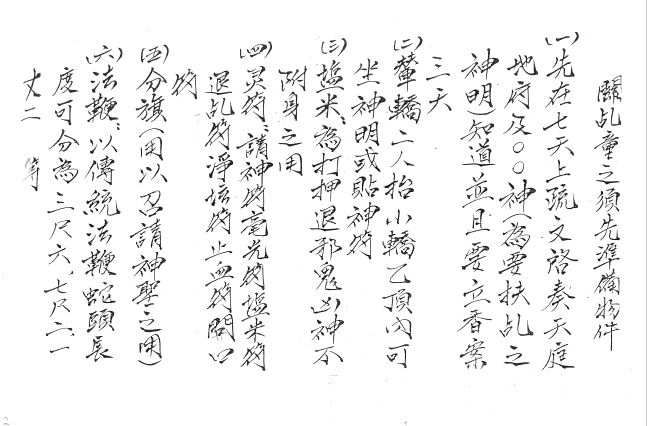 關乩童之須先準備物件
(一)先在七天上疏文啓奏天庭
地府及○○神(為要扶乩之
神明)知道並且要立香案
三天
(二)輦轎:二人抬小轎乙頂內可
坐神明或貼神符
(三)塩米:為打押退邪鬼凶神不
附身之用
(四)灵符:請神符毫光符塩米符
退乩符淨坛符止血符開口
符
(五)分旗(用以召請神聖之用)
(六)法鞭:以傳統法鞭蛇頭長
度可分為三尺六、七尺二、一
丈二 等